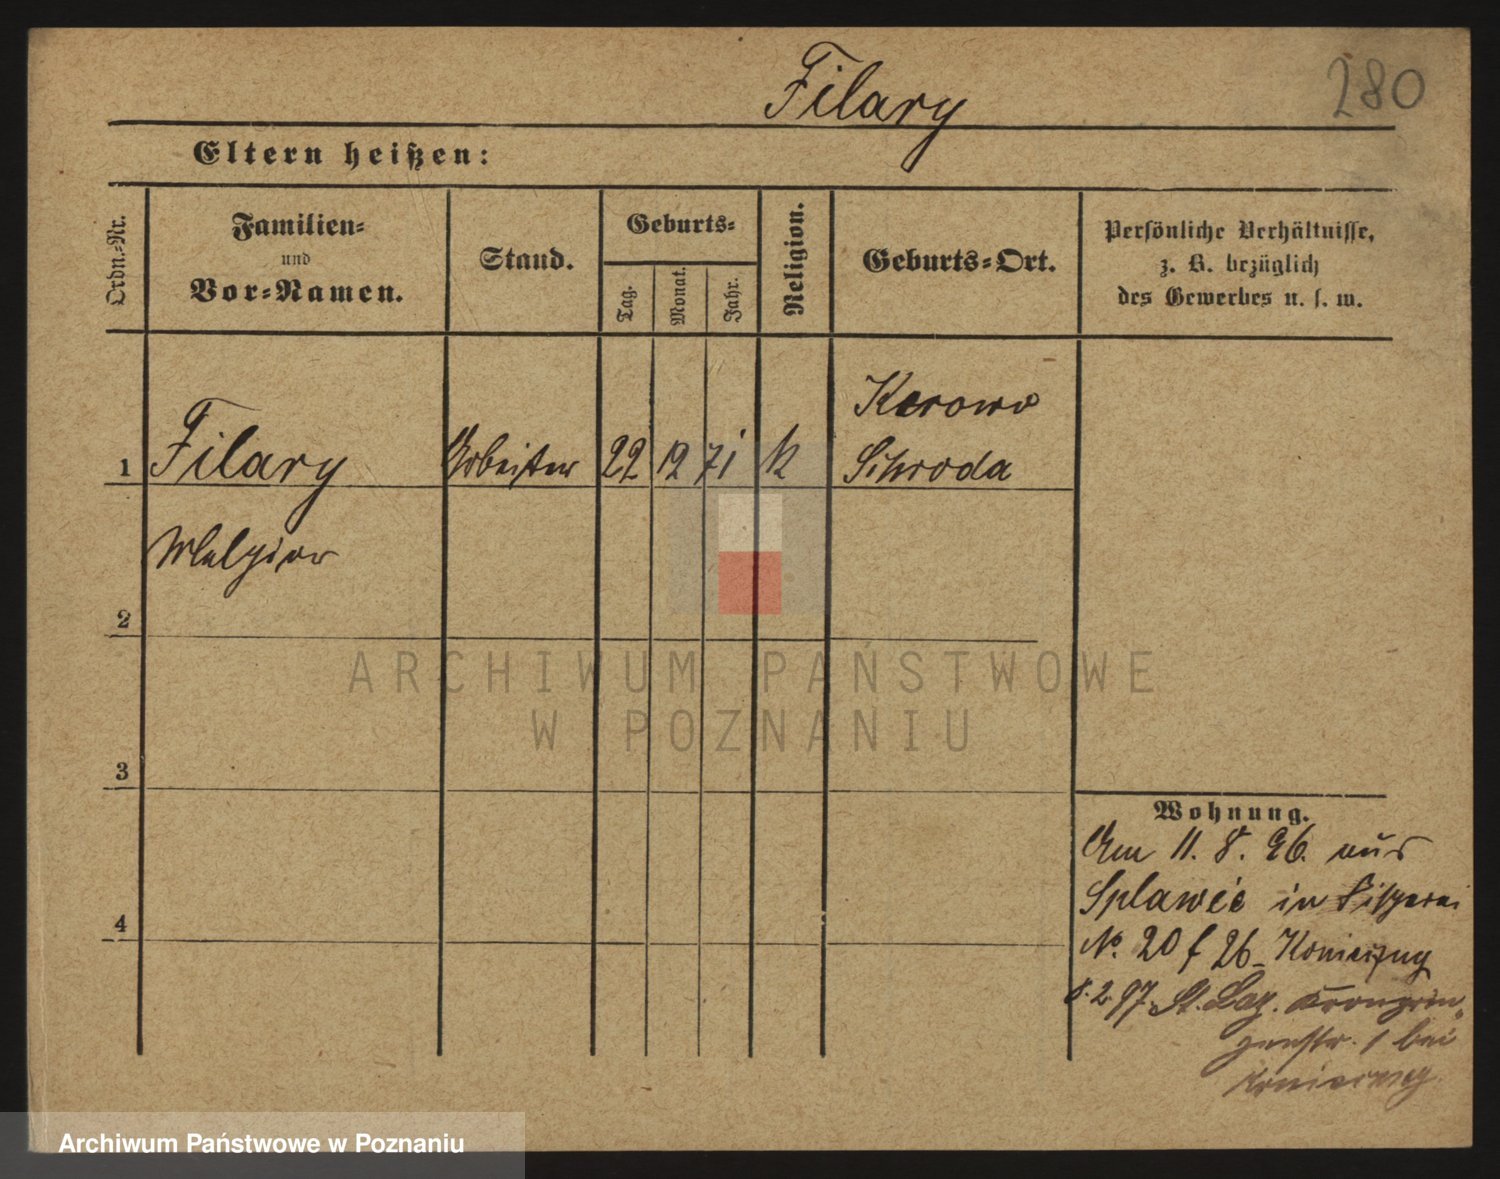 280
Filary
Eltern heißen:
Ordn.-Nr.
Familien-
und
Vor-Namen.
Stand.
Geburts-
Tag.
Monat.
Jahr.
Religion.
Geburts-Ort.
Persönliche Verhältnisse,
z. B. bezüglich
des Gewerbes u. s. w.
Kerowo
1 Filary Arbeiter 22 12 71 k Schroda
Melchior
2
3
4
Wohnung.
Am 11. 8. 96. aus
Splawie in
No. 20 f 26
8. 2. 97. St. Laz. Kronprin-
zenstr. 1 bei
ARCHIWUM PAŃSTWOWE
W POZNANIU
Archiwum Państwowe w Poznaniu